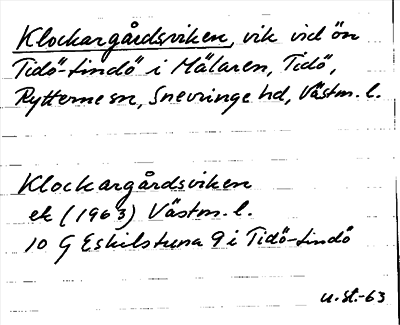 Klockargårdsviken, vik vid ön
Tidö-Lindö i Mälaren, Tidö,
Rytterne sn, Snevringe hd, Västm. l.
Klockargårdsviken
ek (1963) Västm. l.
10 G Eskilstuna 9 i Tidö-Lindö
u.st.-63